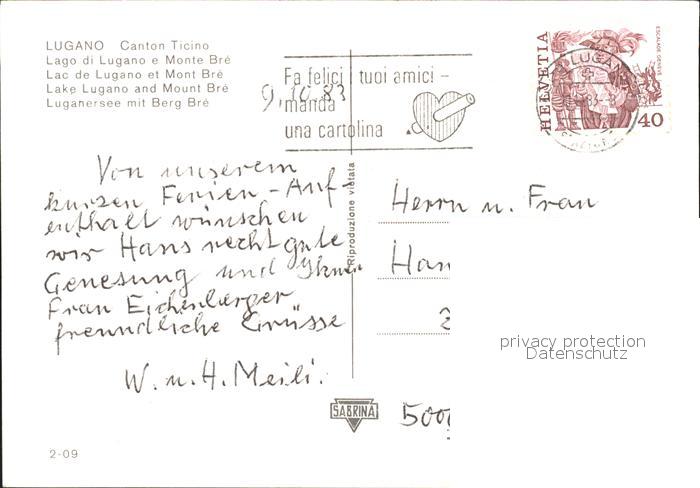 LUGANO Canton Ticino
Lago di Lugano e Monte Brè
Lac de Lugano et Mont Brè
Lake Lugano and Mount Brè
Luganersee mit Berg Brè
Fa felici i tuoi amici –
manda
una cartolina
9.10.83
HELVETIA
ESCALADE GENÈVE
40
LUGANO
Von unserem
kurzen Ferien-Auf-
enthalt wünschen
wir Hans recht gute
Genesung und Ihnen
Frau Eichenberger
freundliche Grüsse
W. u. H. Meili.
Riproduzione vietata
Herrn u. Frau
Han
privacy protection
Datenschutz
SABRINA
500
2-09